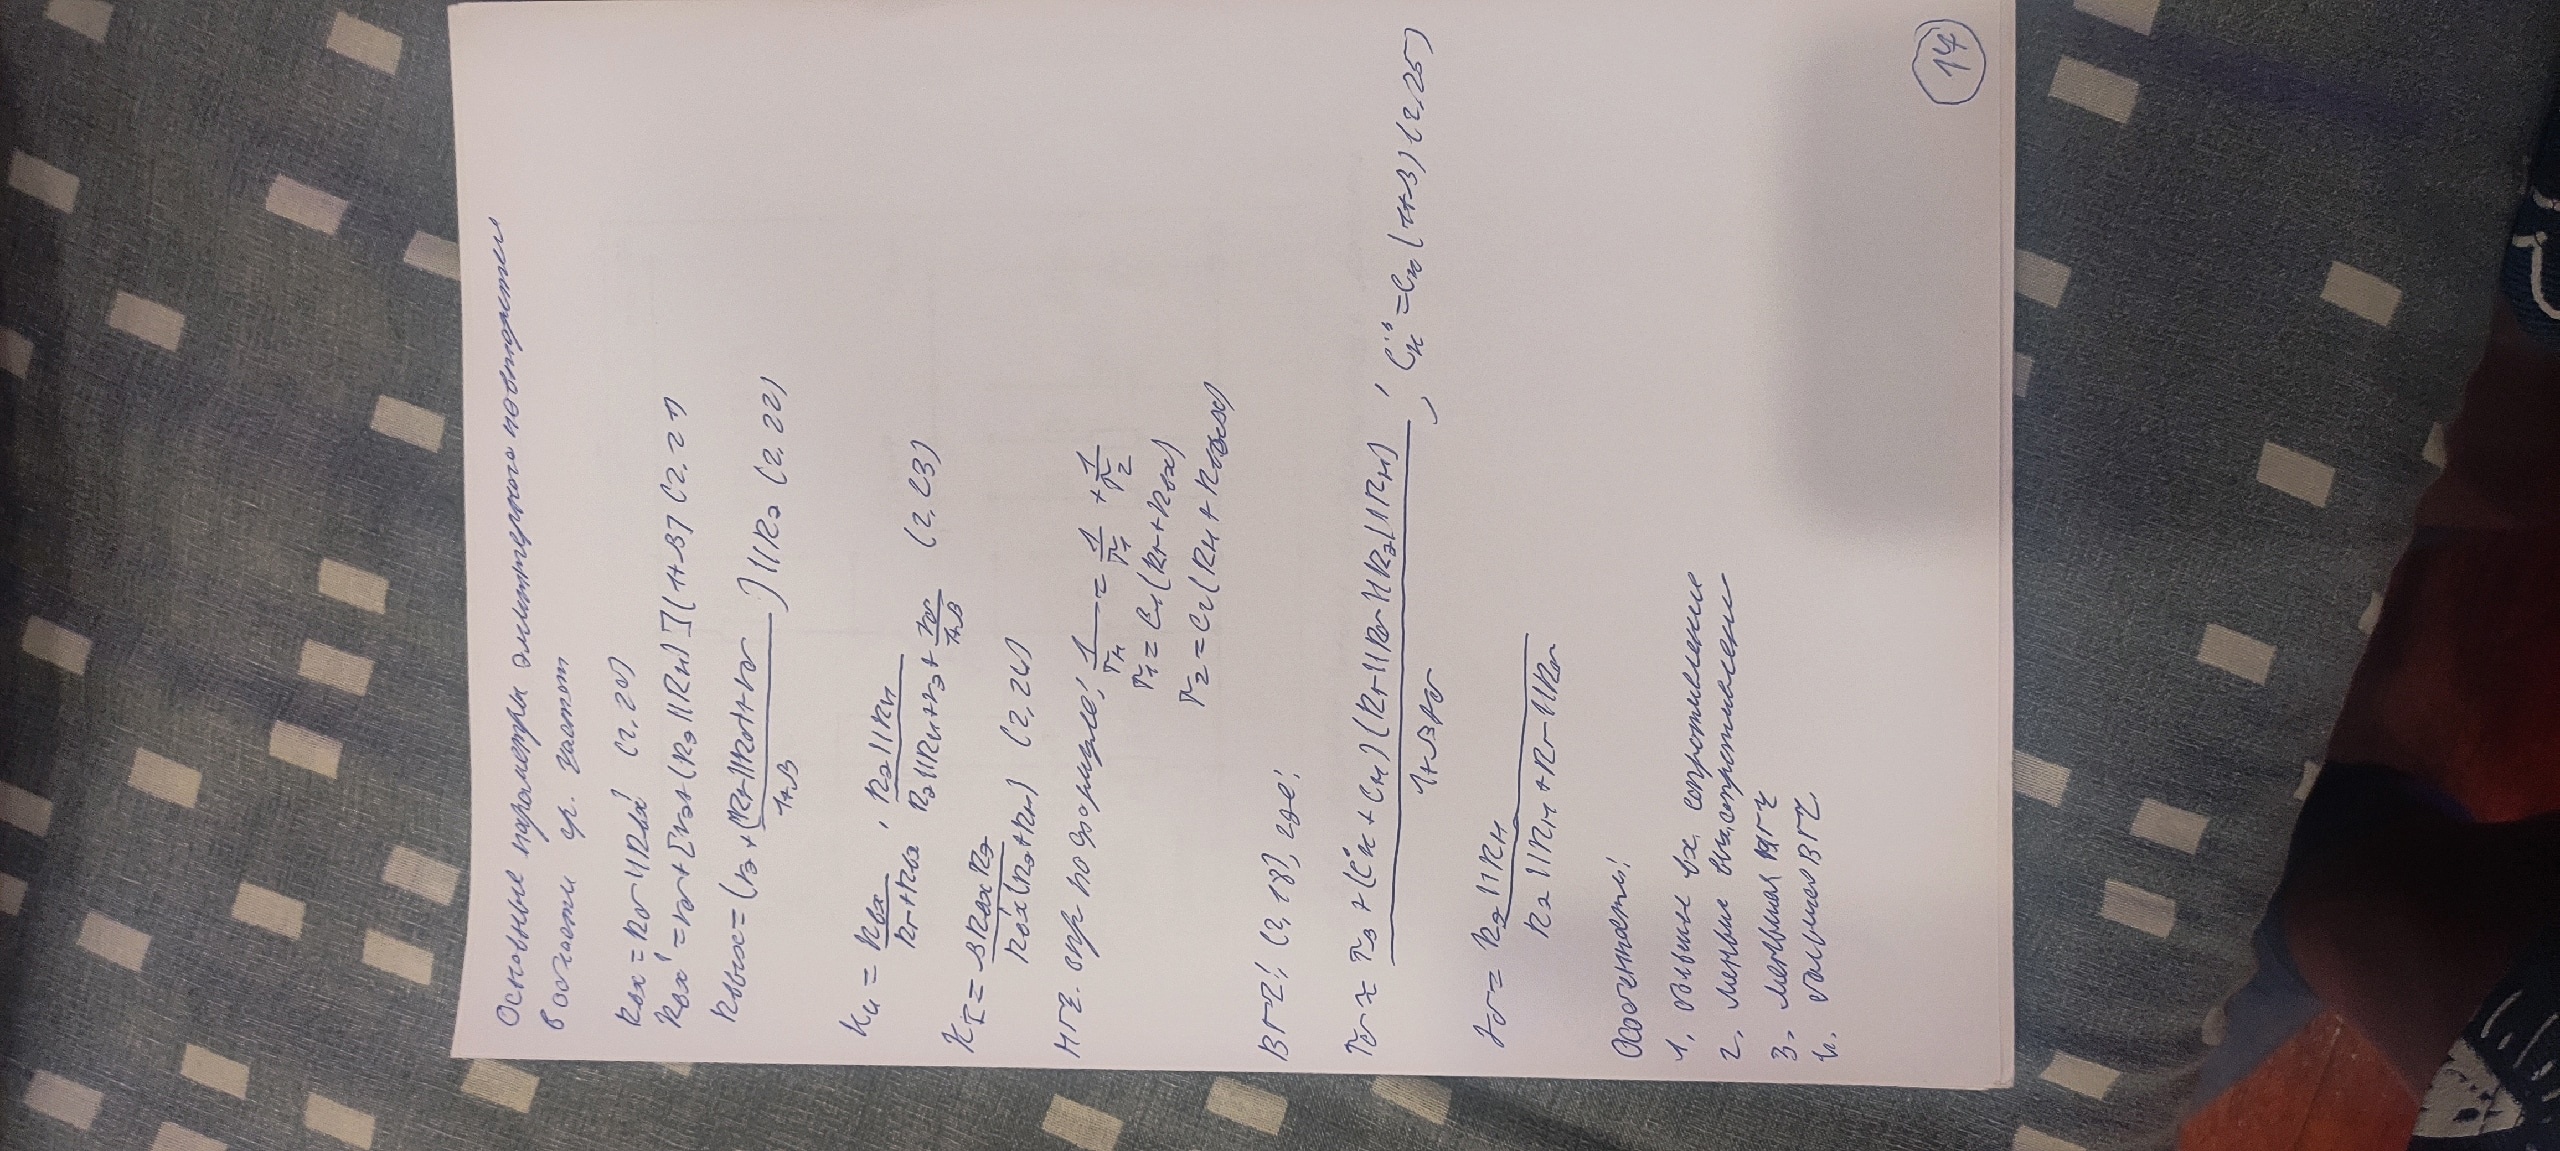 Основные параметры эмиттерного повторителя
в области ср. частот
Rвх = Rб || Rвх' (2.20)
Rвх' = rб + [rэ + (Rэ || Rн)] (1+β) (2.21)
Rвых = (rэ + (Rг || Rб) + rб / 1+β) || Rэ (2.22)
Ku = Rвх / Rг + Rвх · Rэ || Rн / Rэ || Rн + rэ + rб / 1+β (2.23)
KI = β Rвх Rэ / Rвх' (Rэ + Rн) (2.24)
НГЧ. опр по формуле: 1/τн = 1/τ1 + 1/τ2
τ1 = C1 (Rг + Rвх)
τ2 = C2 (Rн + Rвых)
ВГЧ: (2.18), где:
τв ≈ τβ + (Cк' + Cн) (Rг || Rб || Rэ || Rн) / 1+βγб , Cк' = Cк (1+β) (2.25)
γб = Rэ || Rн / Rэ || Rн + Rг || Rб
Особенности:
1. большие вх. сопротивление
2. меньшие вых. сопротивлен
3. меньшая НГЧ
4. большая ВГЧ.
14